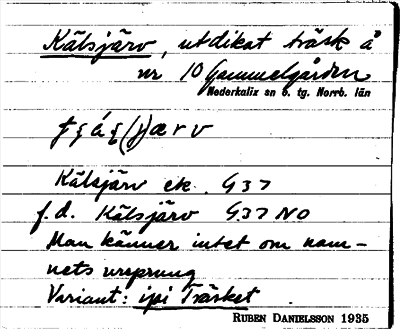 Kälsjärv, utdikat träsk å
nr 10 Gammelgården
Nederkalix sn o. tg. Norrb. län
Kälsjärv ek. G37
f.d. Kälsjärv G37 NO
Man känner intet om nam-
nets ursprung
Variant: ipi Träsket
RUBEN DANIELSSON 1935